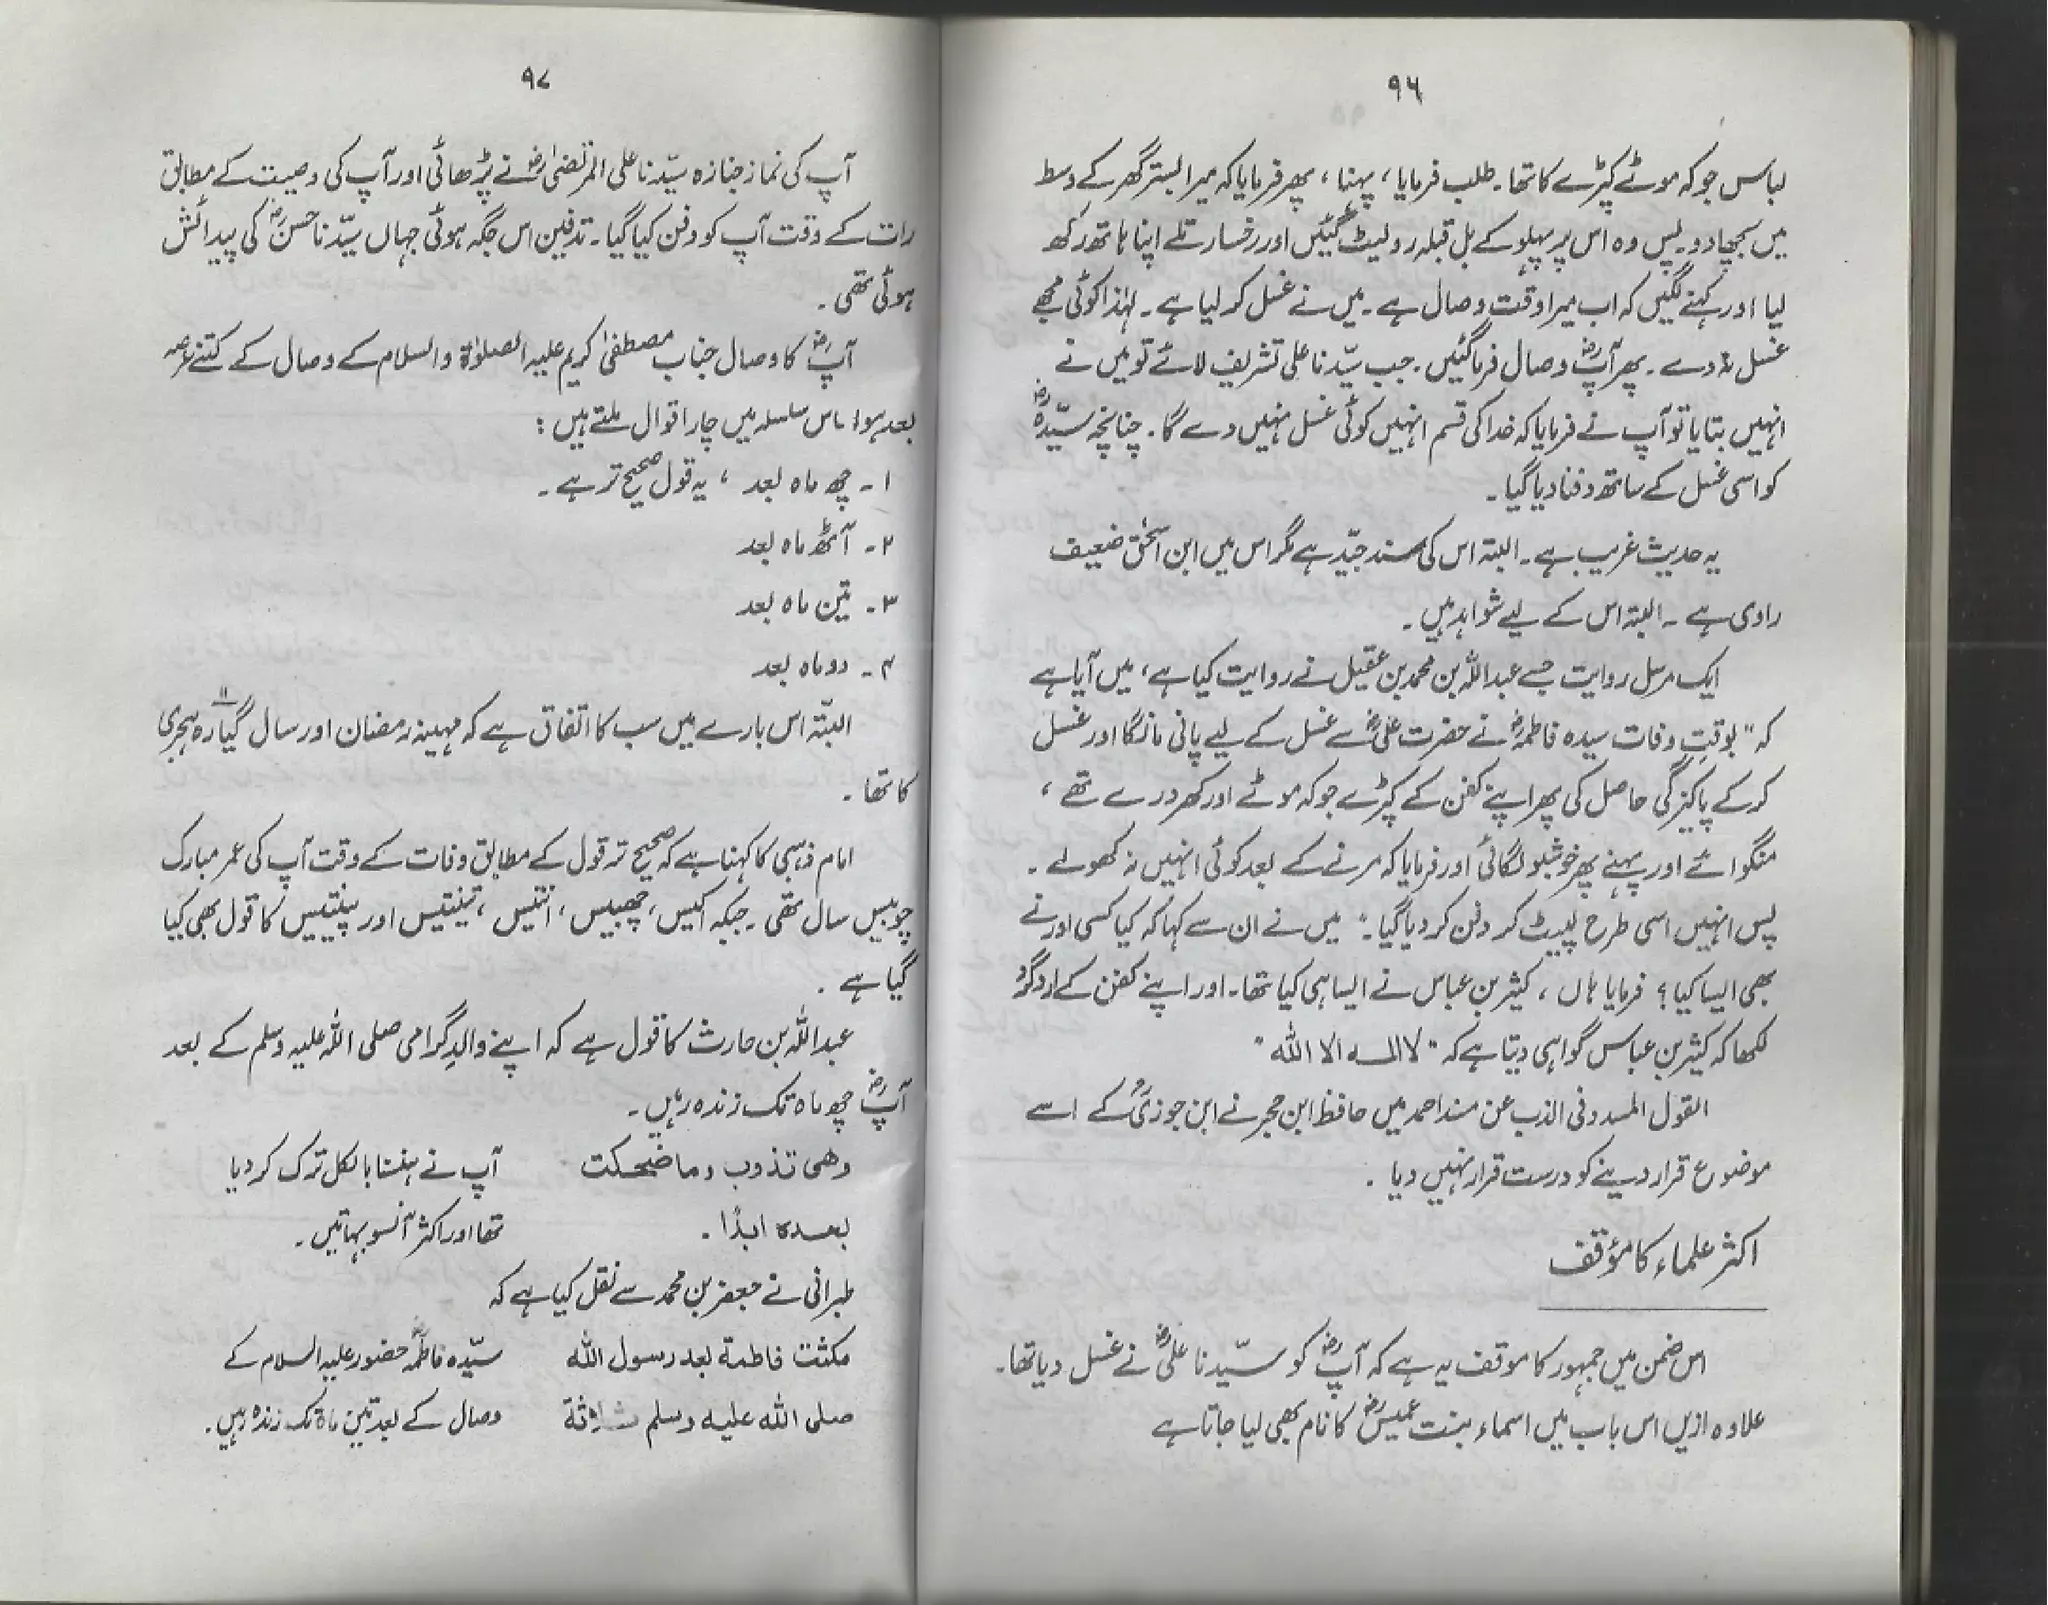 ۹۶
لباس جو کہ موٹے کپڑے کا تھا۔ طلب فرمایا، پہنا، پھر فرمایا کہ میرا بستر گھر کے وسط
میں بچھا دو۔ پس وہ اس پر پہلو کے بل قبلہ رو لیٹ گئیں اور رخسار تلے اپنا ہاتھ رکھ
لیا اور کہنے لگیں کہ اب میرا وقت وصال ہے۔ میں نے غسل کر لیا ہے۔ لہٰذا کوئی مجھے
غسل نہ دے۔ پھر آپؓ وصال فرما گئیں۔ جب سیّدنا علی تشریف لائے تو میں نے
انہیں بتایا تو آپ نے فرمایا کہ خدا کی قسم انہیں کوئی غسل نہیں دے گا۔ چنانچہ سیّدہؓ
کو اسی غسل کے ساتھ دفنا دیا گیا۔
یہ حدیث غریب ہے۔ البتہ اس کی سند جیّد ہے مگر اس میں ابن اسحٰق ضعیف
راوی ہے۔ البتہ اس کے لیے شواہد ہیں۔
ایک مرسل روایت جسے عبداللہ بن محمد بن عقیل نے روایت کیا ہے، میں آیا ہے
کہ "بوقتِ وفات سیدہ فاطمہؓ نے حضرت علیؓ سے غسل کے لیے پانی مانگا اور غسل
کر کے پاکیزگی حاصل کی پھر اپنے کفن کے کپڑے جو کہ موٹے اور کھردرے تھے،
منگوائے اور پہنے پھر خوشبو لگائی اور فرمایا کہ مرنے کے بعد کوئی انہیں نہ کھولے۔
پس انہیں اسی طرح لپیٹ کر دفن کر دیا گیا۔" میں نے ان سے کہا کہ کیا کسی اور نے
بھی ایسا کیا؟ فرمایا ہاں، کثیر بن عباس نے ایسا ہی کیا تھا۔ اور اپنے کفن کے اردگرد
لکھا کہ کثیر بن عباس گواہی دیتا ہے کہ "لا الٰہ الا اللہ"
القول المسدد فی الذب عن مسند احمد میں حافظ ابن حجر نے ابن جوزیؒ کے اسے
موضوع قرار دینے کو درست قرار نہیں دیا۔
اکثر علماء کا مؤقف
اس ضمن میں جمہور کا موقف یہ ہے کہ آپؓ کو سیّدنا علیؓ نے غسل دیا تھا۔
علاوہ ازیں اس باب میں اسماء بنت عمیسؓ کا نام بھی لیا جاتا ہے
۹۷
آپ کی نماز جنازہ سیّدنا علی المرتضیٰؓ نے پڑھائی اور آپ کی وصیت کے مطابق
رات کے وقت آپ کو دفن کیا گیا۔ تدفین اس جگہ ہوئی جہاں سیّدنا حسنؓ کی پیدائش
ہوئی تھی۔
آپؓ کا وصال جناب مصطفیٰ کریم علیہ الصلوٰۃ والسلام کے وصال کے کتنے عرصہ
بعد ہوا، اس سلسلہ میں چار اقوال ملتے ہیں:
۱۔ چھ ماہ بعد، یہ قول صحیح تر ہے۔
۲۔ آٹھ ماہ بعد
۳۔ تین ماہ بعد
۴۔ دو ماہ بعد
البتّہ اس بارے میں سب کا اتفاق ہے کہ مہینہ رمضان اور سال گیارہ ۱۱ ہجری
کا تھا۔
امام ذہبی کا کہنا ہے کہ صحیح تر قول کے مطابق وفات کے وقت آپ کی عمر مبارک
چوبیس سال تھی۔ جبکہ اکیس، چھبیس، انتیس، تینتیس اور پینتیس کا قول بھی کیا
گیا ہے۔
عبداللہ بن حارث کا قول ہے کہ اپنے والدِ گرامی صلی اللہ علیہ وسلم کے بعد
آپؓ چھ ماہ تک زندہ رہیں۔
وھی تذوب وما ضحکت آپ نے ہنسنا بالکل ترک کر دیا
بعدہ ابدًا۔ تھا اور اکثر آنسو بہاتیں۔
طبرانی نے جعفر بن محمد سے نقل کیا ہے کہ
مکثت فاطمۃ بعد رسول اللہ سیّدہ فاطمہؓ حضور علیہ السلام کے
صلی اللہ علیہ وسلم ثلاثۃ وصال کے بعد تین ماہ تک زندہ رہیں۔